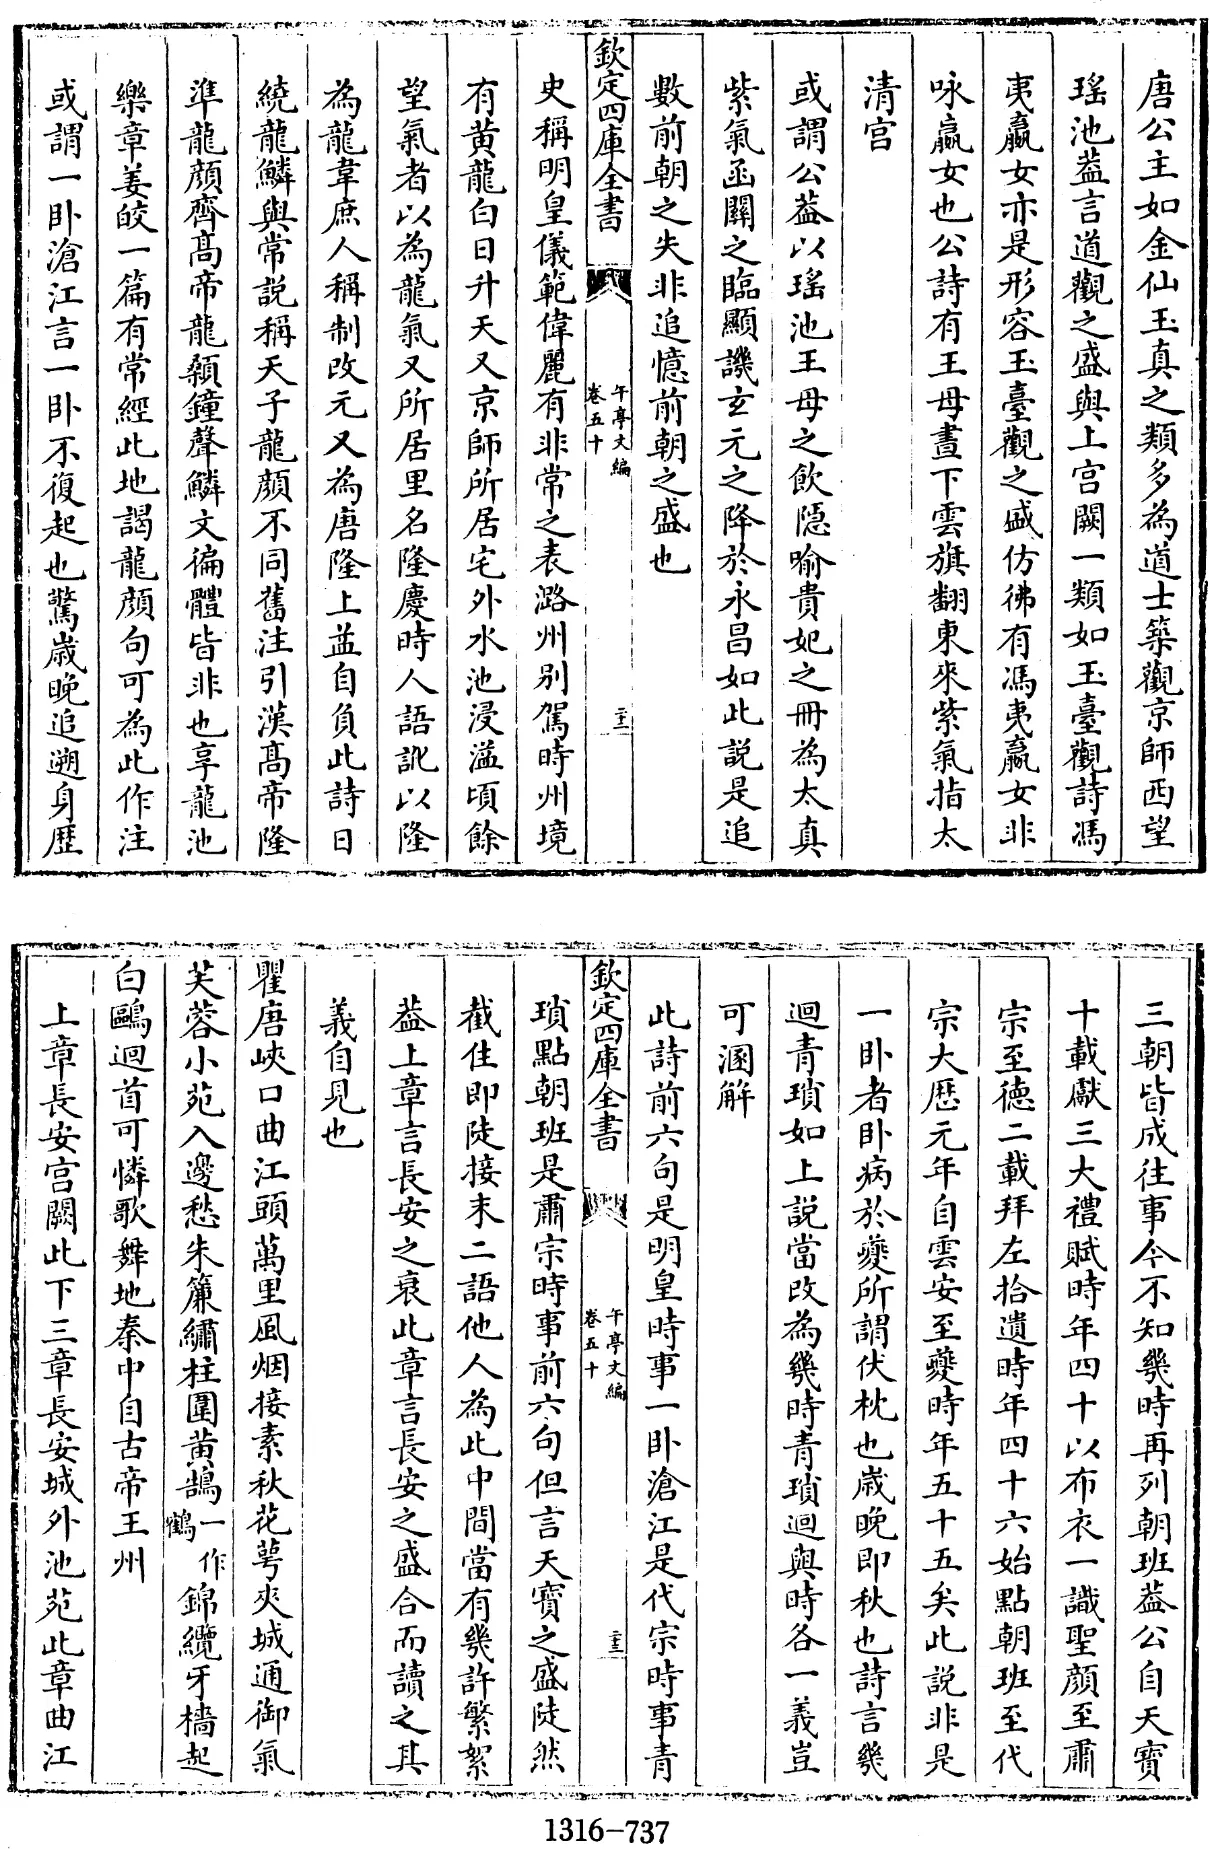 唐公主如金仙玉真之類多為道士築觀京師西望
瑤池葢言道觀之盛與上宫闕一類如玉臺觀詩馮
夷嬴女亦是形容玉臺觀之盛仿彿有馮夷嬴女非
咏嬴女也公詩有王母晝下雲旗翻東來紫氣指太
清宫
或謂公葢以瑤池王母之飲隠喻貴妃之冊為太真
紫氣函關之臨顯譏玄元之降於永昌如此説是追
數前朝之失非追憶前朝之盛也
欽定四庫全書
午亭文編
卷五十
二十二
史稱明皇儀範偉麗有非常之表潞州别駕時州境
有黄龍白日升天又京師所居宅外水池浸溢頃餘
望氣者以為龍氣又所居里名隆慶時人語訛以隆
為龍韋庶人稱制改元又為唐隆上益自負此詩日
繞龍鱗與常説稱天子龍顔不同舊注引漢髙帝隆
凖龍顔齊髙帝龍顙鐘聲鱗文徧體皆非也享龍池
樂章姜皎一篇有常經此地謁龍顔句可為此作注
或謂一卧滄江言一卧不復起也驚歲晚追遡身歴
三朝皆成往事今不知幾時再列朝班葢公自天寳
十載獻三大禮賦時年四十以布衣一識聖顔至肅
宗至德二載拜左拾遺時年四十六始點朝班至代
宗大歴元年自雲安至夔時年五十五矣此説非是
一卧者卧病於夔所謂伏枕也歲晚即秋也詩言幾
迴青瑣如上説當改為幾時青瑣迴與時各一義豈
可溷解
此詩前六句是明皇時事一卧滄江是代宗時事青
欽定四庫全書
午亭文編
卷五十
二十三
瑣點朝班是肅宗時事前六句但言天寳之盛陡然
截住即陡接末二語他人為此中間當有幾許繁絮
葢上章言長安之衰此章言長安之盛合而讀之其
義自見也
瞿唐峽口曲江頭萬里風烟接素秋花萼夾城通御氣
芙蓉小苑入邊愁朱簾繡柱圍黄鵠一作鶴錦纜牙檣起
白鷗迴首可憐歌舞地秦中自古帝王州
上章長安宫闕此下三章長安城外池苑此章曲江
1316-737